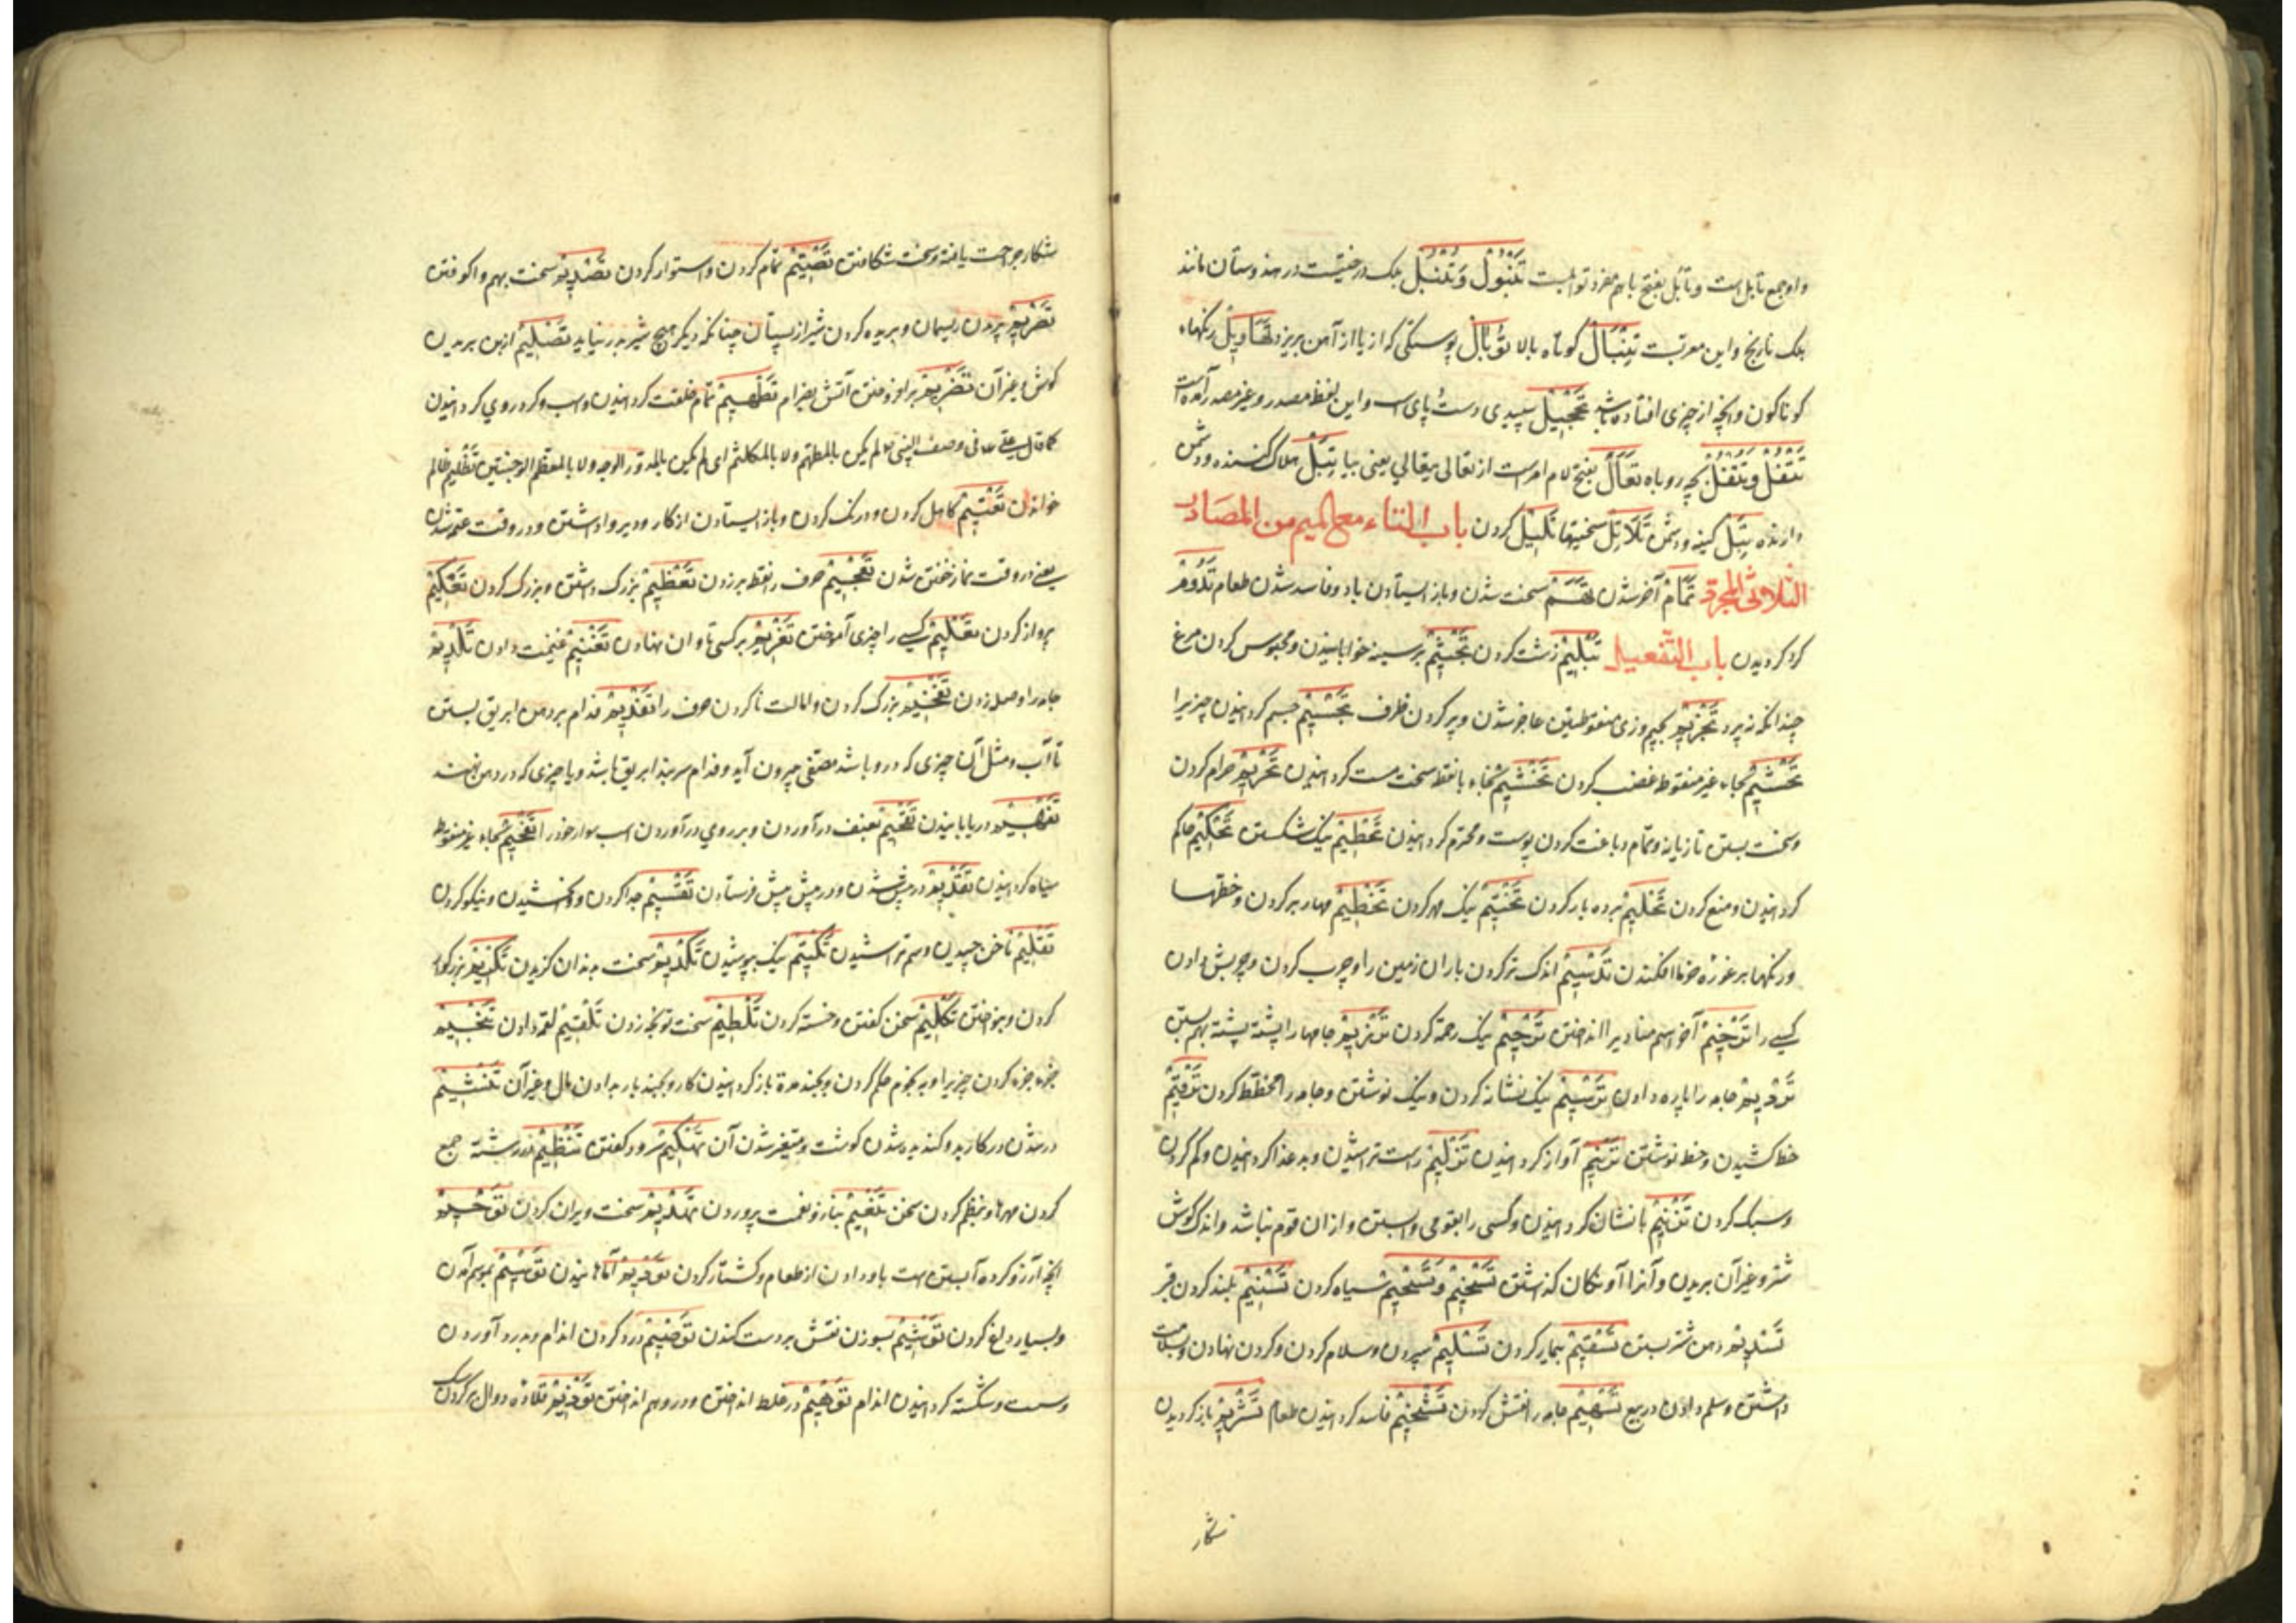 و او جمع تابل است و تابل بفتح با هم مفرد توابلست تَنْبُولْ وَ تُنْبُلْ برگ درختیست در هندوستان مانند
برگ نارنج و این معربست تِنْبَالْ کوتاه بالا تُوْبَالْ پوستکی که از یا از آهن بریزد تَهَاوِیلْ رنگهاء
کوناکون و آنچه از چیزی افتاده باشد تَحْجِیْلْ سپیدی دست و پای اسب و این لفظ مصدر و غیر مصدر آمده است
تَتْفُلْ وَ تُتْفُلْ بچه روباه تَعَالَ بفتح لام امرست از تعالی یتعالی یعنی بیا تَبْلْ هلاک کننده و دشمن
دارنده تَبْل کینه و دشمنی تَلَاتِلْ سختیها تَلْبِیْل کردن باب التاء مع المیم من المصادر
الثلاثی المجرد تَمَامْ آخر شدن تَهَمْ سخت شدن و باز ایستادن باد و فاسد شدن طعام تَدْوُمْ
کرد کردیدن باب التفعیل تَبْلِیْمْ زشت کردن تَجْثِیْمْ بر سینه خوابانیدن و محبوس کردن مرغ
چندانکه نپرد تَجْزِیْمْ بجیم و زی منقوطتین عاجز شدن و پر کردن ظرف تَجْسِیْمْ جسم کردانیدن چیزیرا
تَحْشِیْمْ بحاء غیر منقوط غضب کردن تَخْشِیْمْ بخاء با نقط سخت مست کردانیدن تَحْرِیْمْ حرام کردن
و سخت بستن تازیانه و تمام دباغت کردن پوست و محترم کردانیدن تَحْطِیْمْ نیک شکستن تَحْکِیْمْ حاکم
کردانیدن و منع کردن تَحْلِیْمْ برده بار کردن تَخْتِیْمْ نیک مهر کردن تَخْطِیْمْ مهار بر کردن و خطها
و رنگها بر غوزه خرما افکندن تَدْسِیْمْ اندک تر کردن باران زمین را و چرب کردن و چربش دادن
کسی را تَرْخِیْمْ آخر اسم منادی را انداختن تَرْحِیْمْ نیک رحمة کردن تَرْزِیْمْ جامها را پشته پشته بهم بستن
تَرْدِیْمْ جامه را پاره دادن تَرْسِیْمْ نیک نشانه کردن و نیک نوشتن و جامه را مخطط کردن تَرْقِیْمْ
خط کشیدن و خط نوشتن تَرْنِیْمْ آواز کردانیدن تَزْلِیْمْ راست تراشیدن و بد غذا کردانیدن و کم کردن
و سبک کردن تَزْنِیْمْ با نشان کردانیدن و کسی را بقومی وابستن و از آن قوم نباشد و اندک کوش
شتر و غیر آن بریدن و آنرا آونکان کذاشتن تَسْخِیْمْ وَ تَسْحِیْمْ سیاه کردن تَسْنِیْمْ بلند کردن قبر
تَسْدِیْمْ دهن شتر بستن تَسْقِیْمْ بیمار کردن تَسْلِیْمْ سپردن و سلام کردن و کردن نهادن و بسلامت
داشتن و سلم دادن در بیع تَسْهِیْمْ جامه را نقش کردن تَشْخِیْمْ فاسد کردانیدن طعام تَشْرِیْمْ باز کردیدن
شکار
شکار جراحت یافته و سخت شکافتن تَصْتِیْمْ تمام کردن و استوار کردن تَصْدِیْمْ سخت بهم واکوفتن
تَصْرِیْمْ بریدن ریسمان و بریده کردن شیر از پستان چنانکه دیگر هیچ شیر بدر نیاید تَصْلِیْمْ از بن بریدن
کوش و غیر آن تَضْرِیْمْ بر افروختن آتش بضرام تَطْهِیْمْ تمام خلقت کردانیدن اسب و کرد روی کردانیدن
کما قال علی فی وصف النبی لم یکن بالمطهم ولا بالمکلثم ای لم یکن بالمدور الوجه ولا بالمعظم الوجنتین تَظْلِیْمْ ظالم
خواندن تَعْتِیْمْ کاهل کردن و درنک کردن و باز ایستادن از کار و دیر وا داشتن و در وقت عتمه شدن
یعنی در وقت نماز خفتن شدن تَعْجِیْمْ حرف را نقطه بر زدن تَعْظِیْمْ بزرک داشتن و بزرک کردن تَعْکِیْمْ
پرواز کردن تَعْلِیْمْ کسی را چیزی آموختن تَغْرِیْمْ بر کسی تاوان نهادن تَغْنِیْمْ غنیمت دادن تَلْدِیْمْ
جامه را وصله زدن تَفْخِیْمْ بزرک کردن و امالت ناکردن حرف را تَفْدِیْمْ فدام بر دهن ابریق بستن
تا آب و مثل آن چیزی که درو باشد مصفی بیرون آید و فدام سربند ابریق باشد و یا چیزی که در دهن نهند
تَفْهِیْمْ دریابانیدن تَقْحِیْمْ بعنف درآوردن و بر روی درآوردن اسب سوار خود را تَفْحِیْمْ بحاء غیر منقوط
سیاه کردانیدن تَقْدِیْمْ در پیش شدن و در پیش پیش فرستادن تَقْسِیْمْ جدا کردن و بخشیدن و نیکو کردن
تَقْلِیْمْ ناخن چیدن و سم تراشیدن تَکْتِیْمْ نیک بپوشیدن تَکْدِیْمْ سخت بدندان کزیدن تَکْرِیْمْ بزرکوار
کردن و بنواختن تَکْلِیْمْ سخن کفتن و خسته کردن تَلْطِیْمْ سخت تپانچه زدن تَلْقِیْمْ لقمه دادن تَنْجِیْمْ
جزء جزء کردن چیزیرا و بنجوم حکم کردن و بچند مدة باز کردانیدن کار و بچند بار بدادن مال و غیر آن تَنْشِیْمْ
در شدن در کار بد و کندیده شدن کوشت و متغیر شدن آن تَهْکِیْمْ سرود کفتن تَنْظِیْمْ در رشته جمع
کردن مهرها و نظم کردن سخن تَنْعِیْمْ بناز و نعمت پروردن تَهْدِیْمْ سخت ویران کردن تَوْحِیْمْ
آنچه آرزو کرده آبستن است باو دادن از طعام و کشتار کردن تَوْرِیْمْ آماهانیدن تَوْسِیْمْ بموسم آمدن
و بسیار داغ کردن تَوْشِیْمْ بسوزن نقش بر دست کندن تَوْصِیْمْ درد کردن اندام و بدرد آوردن
و سست و شکسته کردانیدن اندام تَوْهِیْمْ در غلط انداختن و در وهم انداختن تَوْذِیْمْ قلاده دوال بر کردن